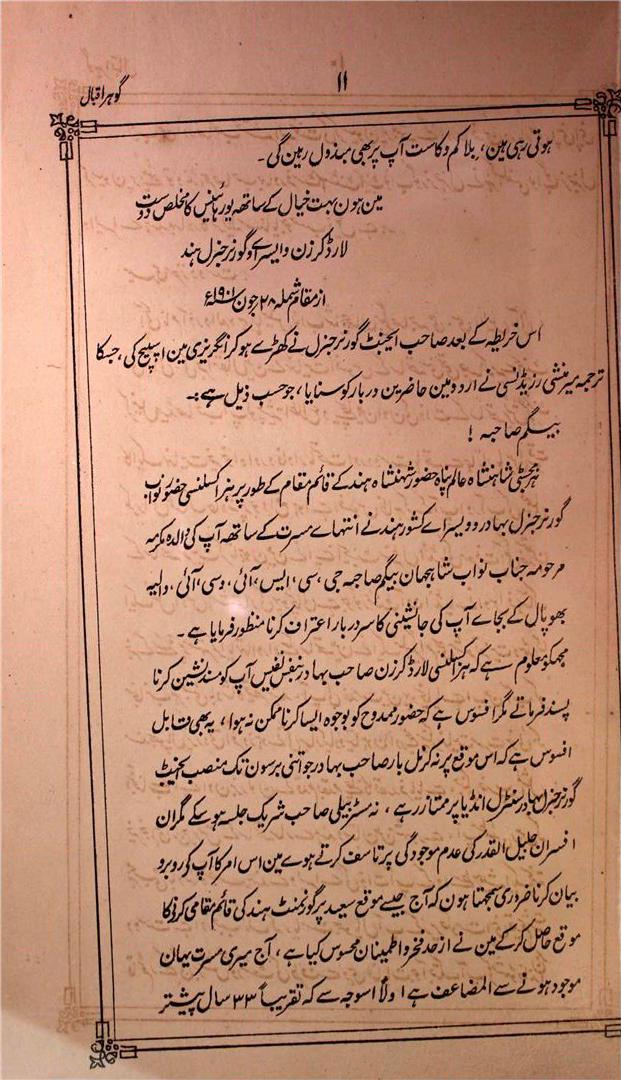 ۱۱
گوہر اقبال
ہوتی رہی ہین، بلا کم و کاست آپ پر بھی مبذول رہین گی۔
مین ہون بہت خیال کے ساتھ یور ہائینس کا مخلص دوست
لارڈ کرزن وایسراے و گورنر جنرل ہند
از مقام شملہ ۲۸ جون ۱۹۰۱ء
اس خریطہ کے بعد صاحب ایجنٹ گورنر جنرل نے کھڑے ہو کر انگریزی مین اسپیچ کی، جسکا
ترجمہ میر منشی رزیڈنسی نے اردو مین حاضرین دربار کو سنایا، جو حسب ذیل ہے:۔
بیگم صاحبہ !
ہزمجسٹی شاہنشاہ عالم پناہ حضور شہنشاہ ہند کے قائم مقام کے طور پر ہز اکسلنسی حضور نواب
گورنر جنرل بہادر و ویسراے کشور ہند نے انتہاے مسرت کے ساتھ آپ کی والدہ مکرمہ
مرحومہ جناب نواب شاہجہان بیگم صاحبہ جی، سی، ایس، آئی، وسی، آئی، والیہ
بھوپال کے بجاے آپ کی جانشینی کا سر دربار اعتراف کرنا منظور فرمایا ہے۔
مجھکو معلوم ہے کہ ہز اکسلنسی لارڈ کرزن صاحب بہادر بنفس نفیس آپ کو مسند نشین کرنا
پسند فرماتے مگر افسوس ہے کہ حضور ممدوح کو بوجوہ ایسا کرنا ممکن نہ ہوا، یہ بھی قابل
افسوس ہے کہ اس موقع پر نہ کرنل بار صاحب بہادر جو اتنی برسون تک منصب ایجنٹ
گورنر جنرل بہادر سنٹرل انڈیا پر ممتاز رہے، نہ مسٹر بیلی صاحب شریک جلسہ ہو سکے مگر ان
افسران جلیل القدر کی عدم موجودگی پر تاسف کرتے ہوے مین اس امر کا آپ کی روبرو
بیان کرنا ضروری سمجھتا ہون کہ آج جیسے موقع سعید پر گورنمنٹ ہند کی قائم مقامی کرنیکا
موقع حاصل کر کے مین نے از حد فخر و اطمینان محسوس کیا ہے، آج میری مسرت یہان
موجود ہونے سے المضاعف ہے اولاً اسوجہ سے کہ تقریباً ۳۳ سال پیشتر